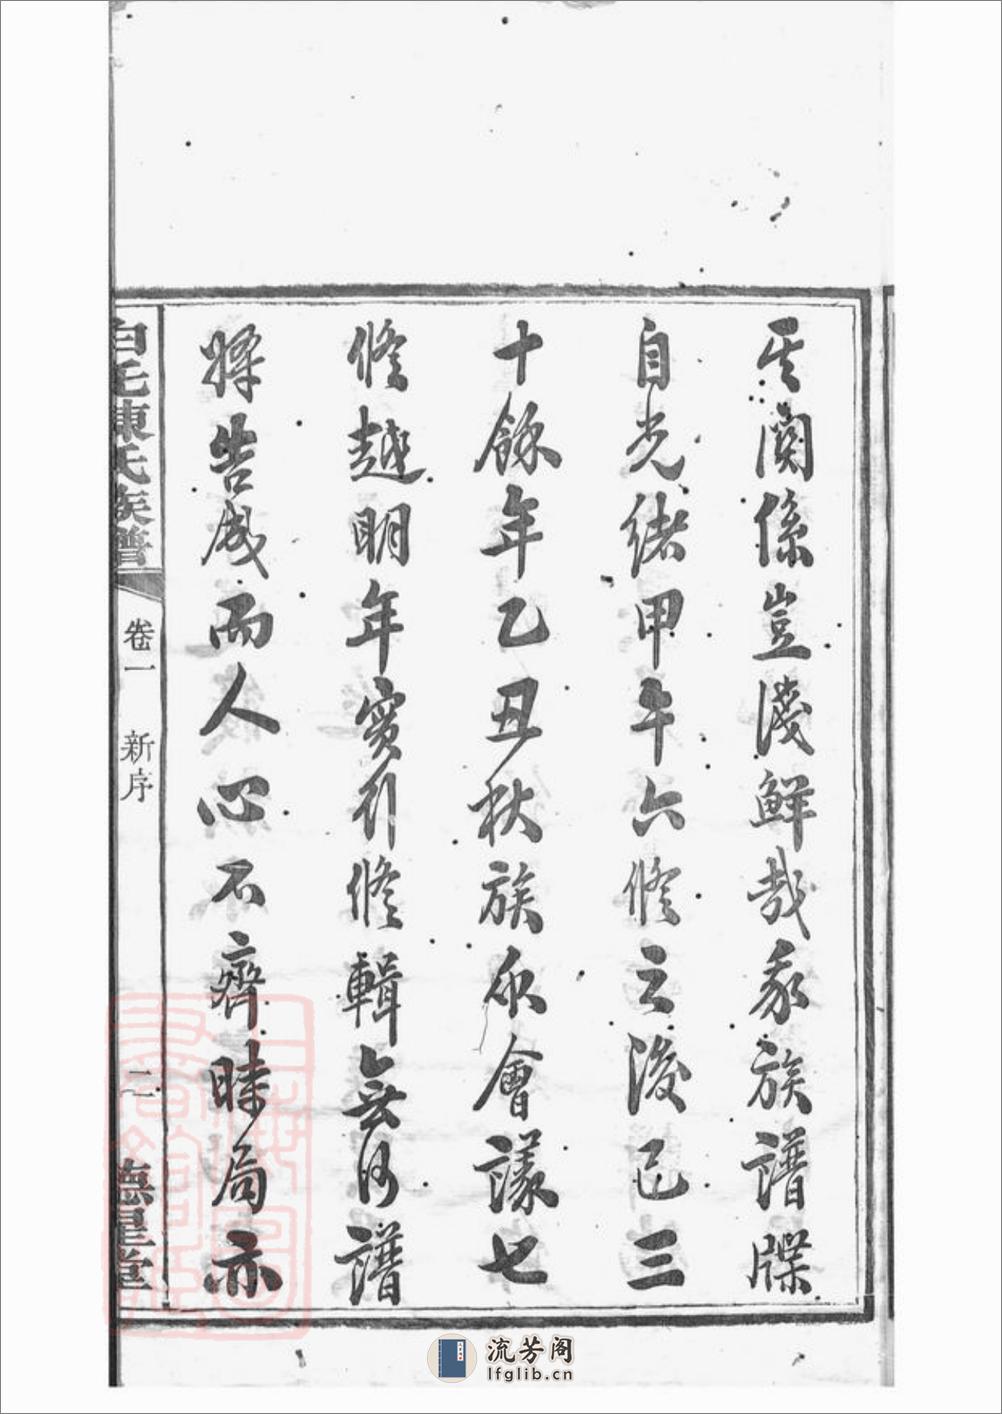 其關係豈淺鮮哉我族譜牒
自光緒甲午六修之後已三
十餘年乙丑秋族众會議七
修越明年實行修輯無何譜
將告成而人心不齊時局亦
白毛陳氏族譜
卷一
新序
二
德星堂
流芳阁
lfglib.cn